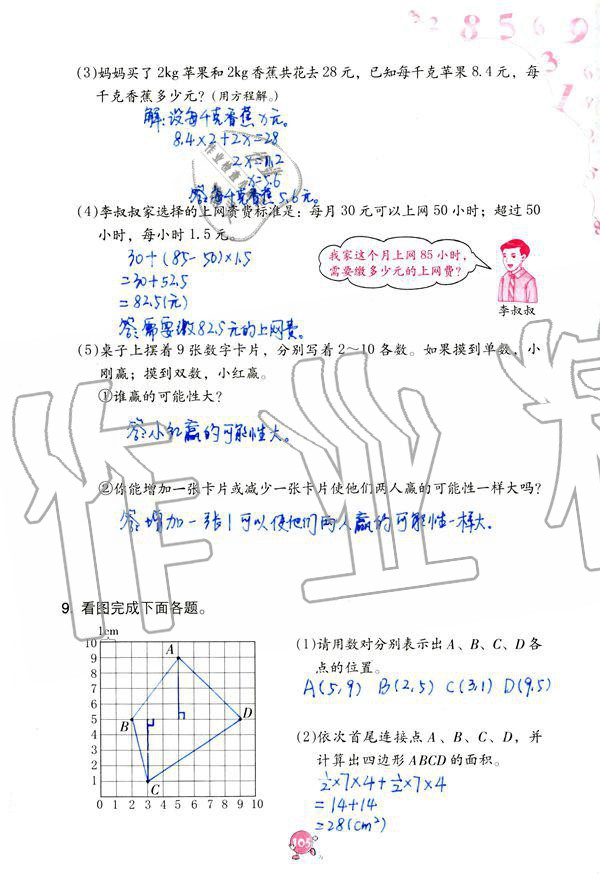 2 8 5 6 9
3
1
8
(3)妈妈买了2kg苹果和2kg香蕉共花去28元，已知每千克苹果8.4元，每
千克香蕉多少元？(用方程解。)
解:设每千克香蕉x元。
8.4×2+2x=28
2x=11.2
x=5.6
答:每千克香蕉5.6元。
(4)李叔叔家选择的上网资费标准是：每月30元可以上网50小时；超过50
小时，每小时1.5元。
30+(85-50)×1.5
=30+52.5
=82.5(元)
答:需要缴82.5元的上网费。
我家这个月上网85小时，
需要缴多少元的上网费？
李叔叔
(5)桌子上摆着9张数字卡片，分别写着2～10各数。如果摸到单数，小
刚赢；摸到双数，小红赢。
①谁赢的可能性大？
答:小红赢的可能性大。
②你能增加一张卡片或减少一张卡片使他们两人赢的可能性一样大吗？
答:增加一张1可以使他们两人赢的可能性一样大。
作业精
9. 看图完成下面各题。
1cm
10
9
8
7
6
5
4
3
2
1
0 1 2 3 4 5 6 7 8 9 10
A
B
C
D
(1)请用数对分别表示出A、B、C、D各
点的位置。
A(5,9) B(2,5) C(3,1) D(9,5)
(2)依次首尾连接点A、B、C、D，并
计算出四边形ABCD的面积。
½×7×4+½×7×4
=14+14
=28(cm²)
105